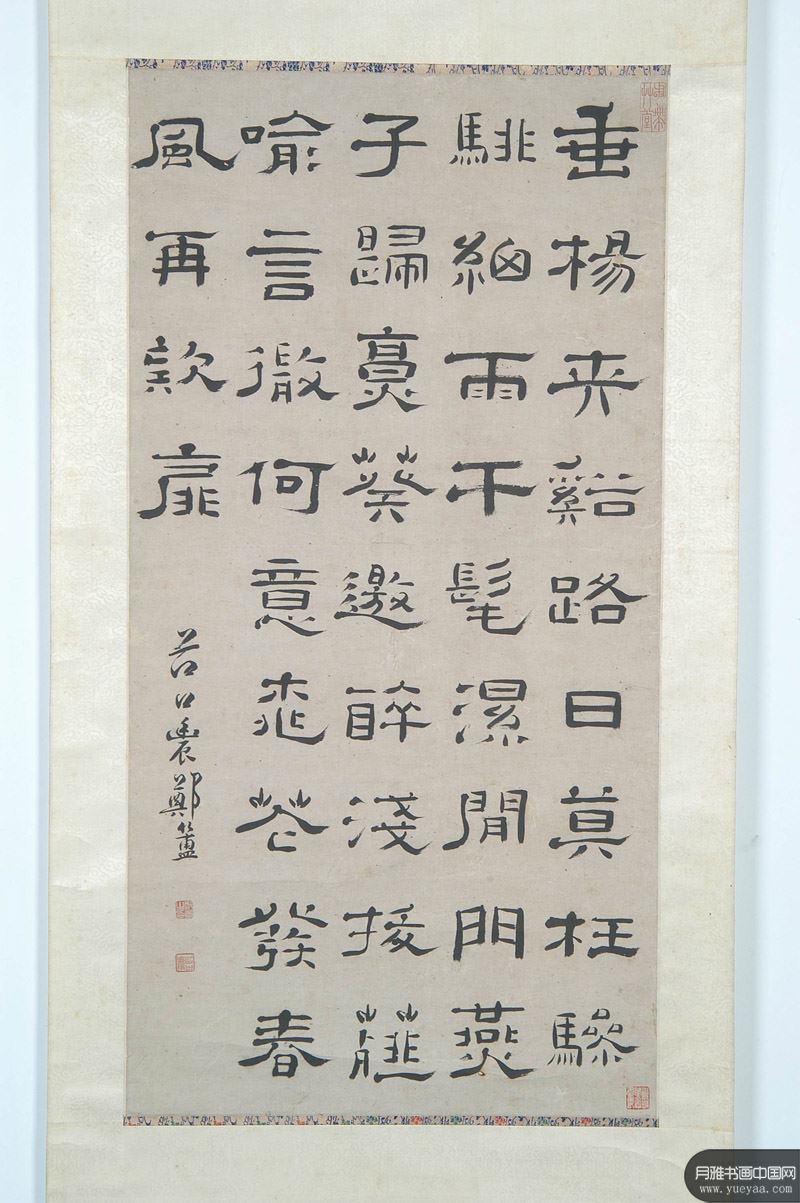 垂楊夾谿路日莫枉驂
騑細雨干髦濕閒門燕
子歸烹葵邀醉淺拔薤
喻言微何意桃花發春
風再款扉
谷口農鄭簠
月雅书画中国网
www.yueyaa.com